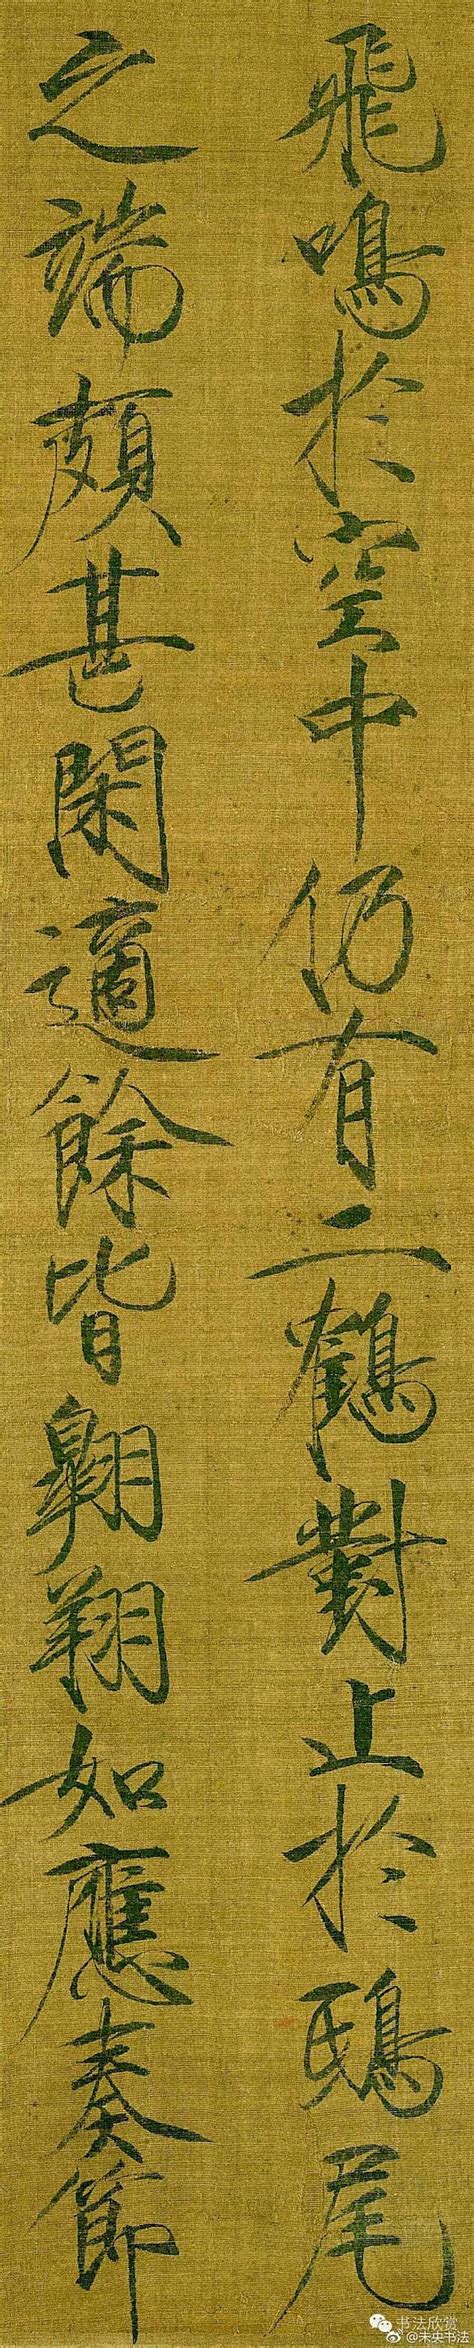 飛鳴於空中仍有二鶴對止於鴟尾
之端頗甚閑適餘皆翱翔如應奏節
书法欣赏
@未央书法